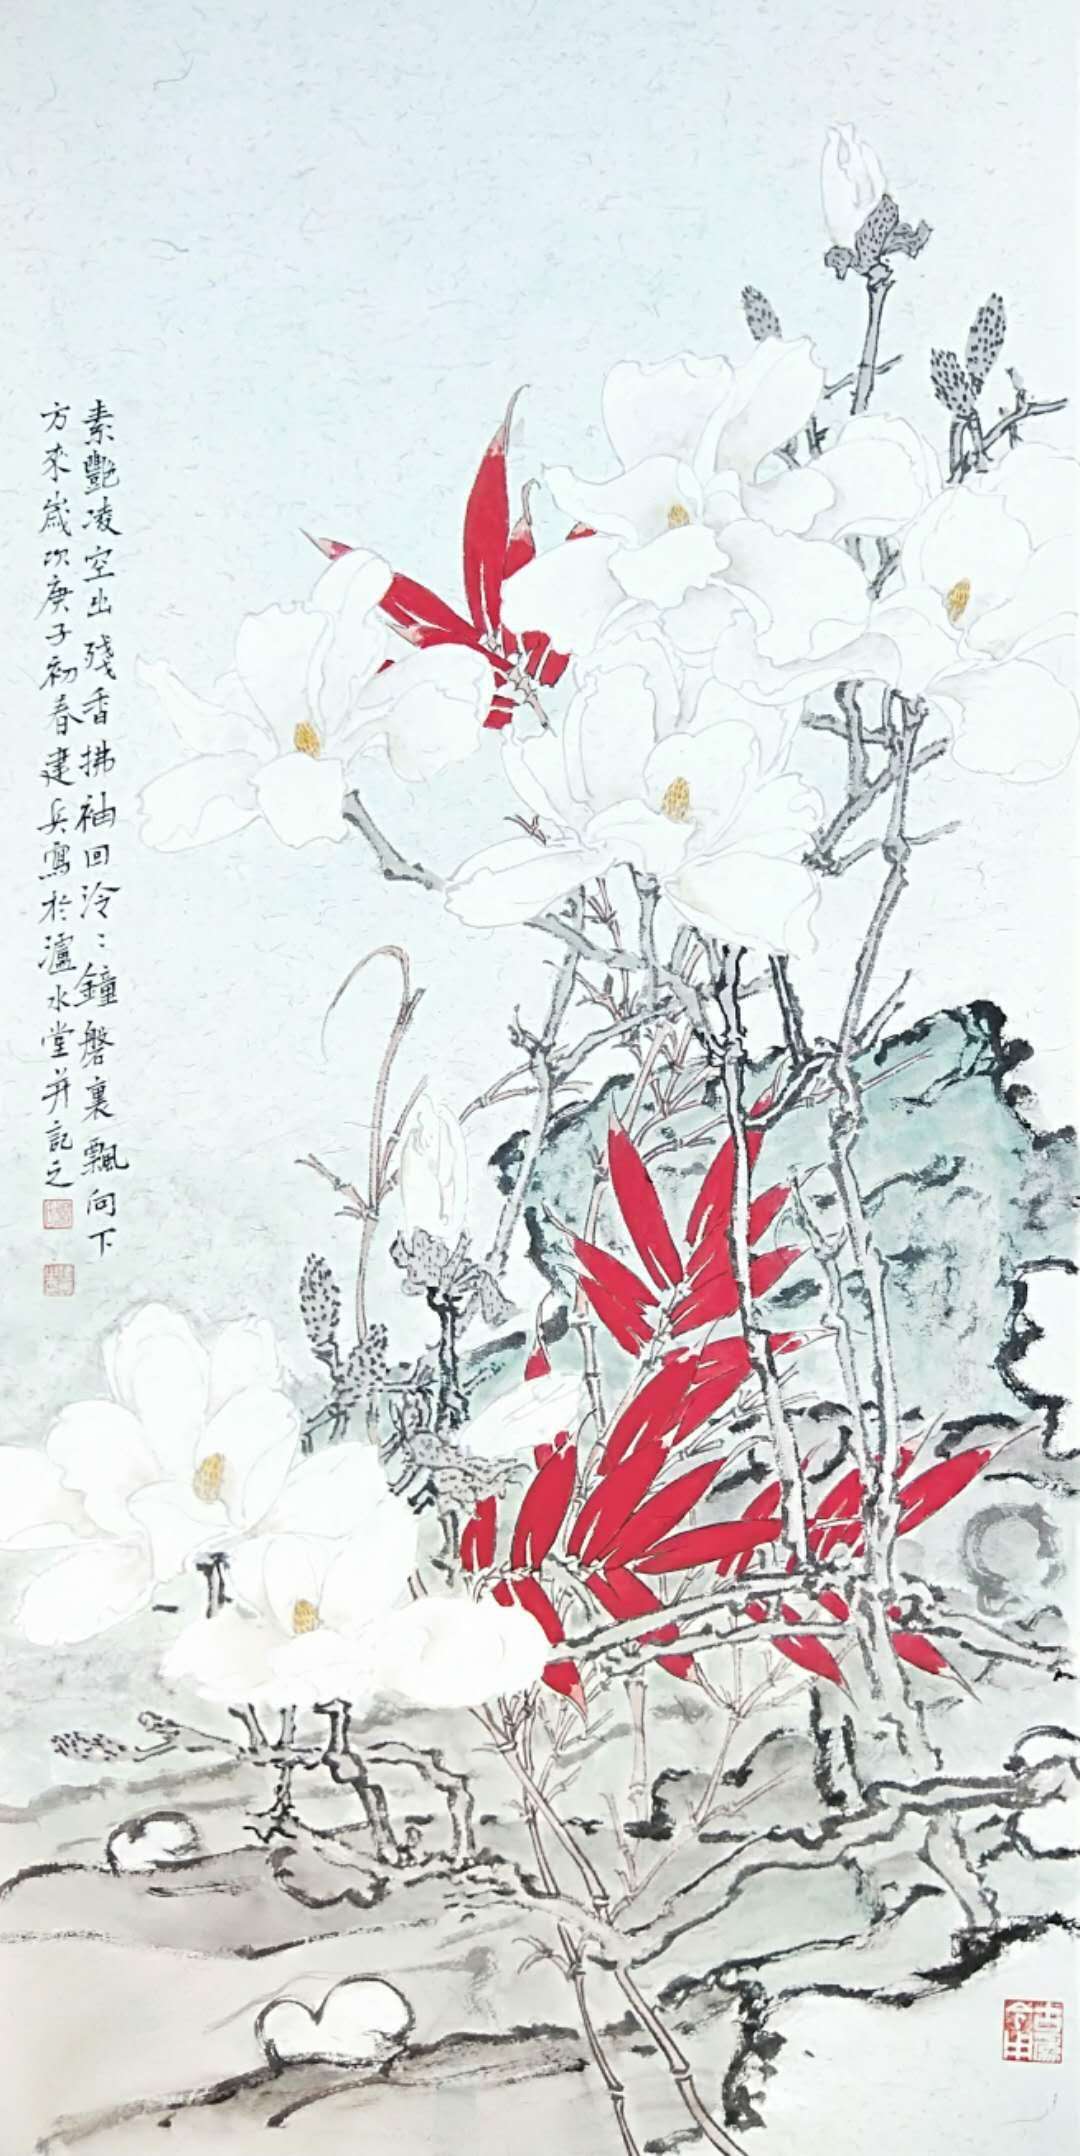 素艷凌空出殘香拂袖回泠〻鐘磬裏飄向下
方來歲次庚子初春建兵寫於瀘水堂并記之